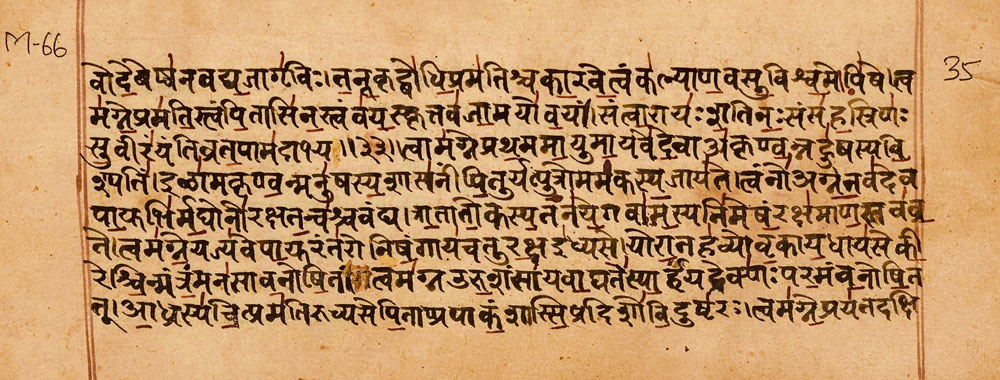 M-66
वोदेवेष्वनवद्यजागृविः।तनूकृद्बोधिप्रमतिश्चकारवेत्वंकल्याणवसुविश्वमोपिषे।त्व
35
मग्नेप्रमतिस्त्वंपितासिनस्त्वंवयस्कृत्तवजामयोवयं।संत्वारायःशतिनःसंसहस्रिणः
सुवीरंयंतिव्रतपामदाभ्य॥३३॥त्वामग्नेप्रथममायुमायवेदेवाअकृण्वन्नहुषस्यवि
श्पतिं।इळामकृण्वन्मनुषस्यशासनींपितुर्यत्पुत्रोममकस्यजायते।त्वंनोअग्नेतवदेव
पायुभिर्मघोनोरक्षतन्वश्चवंद्य।त्रातातोकस्यतनयेगवामस्यनिमेषंरक्षमाणस्तवव्र
ते।त्वमग्नेयज्यवेपायुरंतरोनिषंगायचतुरक्षइध्यसे।योरातहव्योवृकायधायसेकी
रेश्चिन्मंत्रंमनसावनोषितं।त्वमग्नउरुशंसायवाघतेस्पार्हंयद्रेक्णःपरमंवनोषित
त्।आध्रस्यचित्प्रमतिरुच्यसेपिताप्रपाकंशास्सिप्रदिशोविदुष्टरः।त्वमग्नेप्रयतदक्षि